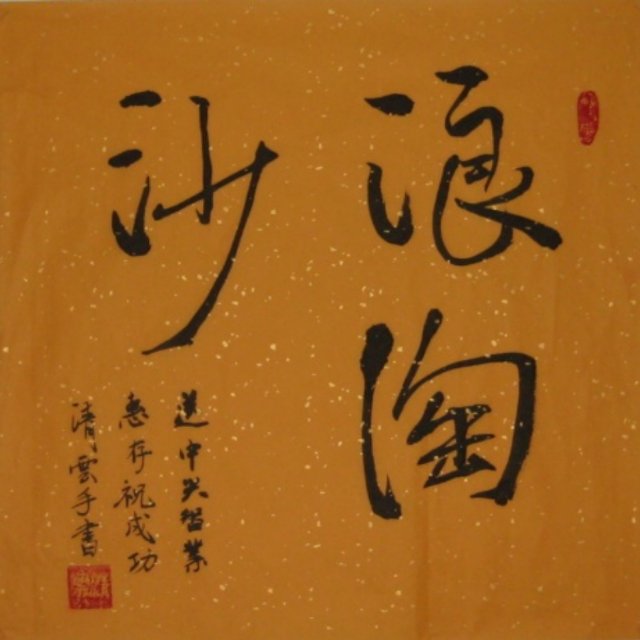 浪淘
沙
送中关智業
惠存祝成功
清雲手書